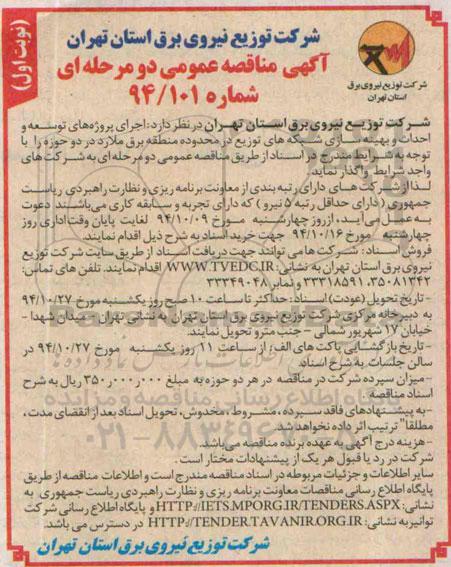 (نوبت اول)
شرکت توزیع نیروی برق استان تهران
آگهی مناقصه عمومی دو مرحله ای
شماره ۹۴/۱۰۱
شرکت توزیع نیروی برق
استان تهران
شرکت توزیع نیروی برق استان تهران در نظر دارد: اجرای پروژه‌های توسعه و
احداث و بهینه سازی شبکه های توزیع در محدوده منطقه برق ملارد در دو حوزه را با
توجه به شرایط مندرج در اسناد از طریق مناقصه عمومی دو مرحله ای به شرکت های
واجد شرایط واگذار نماید.
لذا از شرکت های دارای رتبه بندی از معاونت برنامه ریزی و نظارت راهبردی ریاست
جمهوری ( دارای حداقل رتبه ۵ نیرو ) که دارای تجربه و سابقه کاری می‌باشند دعوت
به عمل می آید، از روز چهارشنبه مورخ ۹۴/۱۰/۰۹ لغایت پایان وقت اداری روز
چهارشنبه مورخ ۹۴/۱۰/۱۶ جهت خرید اسناد به شرح ذیل اقدام نمایند.
فروش اسناد: شرکت ها می توانند جهت دریافت اسناد از طریق سایت شرکت توزیع
نیروی برق استان تهران به نشانی: WWW.TVEDC.IR اقدام نمایند. تلفن های تماس:
۳۵۰۸۱۳۴۲، ۳۳۳۱۸۵۹۱ و نمابر ۳۳۳۴۹۰۴۸
- تاریخ تحویل (عودت) اسناد: حداکثر تا ساعت ۱۰ صبح روز یکشنبه مورخ ۹۴/۱۰/۲۷
به دبیرخانه مرکزی شرکت توزیع نیروی برق استان تهران به نشانی تهران - میدان شهدا -
خیابان ۱۷ شهریور شمالی - جنب مترو تحویل نمایند.
- تاریخ بازگشایی پاکت های الف: از ساعت ۱۱ روز یکشنبه مورخ ۹۴/۱۰/۲۷ در
سالن جلسات به شرح اسناد
- میزان سپرده شرکت در مناقصه در هر دو حوزه به مبلغ ۳۵۰٫۰۰۰٫۰۰۰ ریال به شرح
اسناد مناقصه
- به پیشنهادهای فاقد سپرده، مشروط، مخدوش، تحویل اسناد بعد از انقضای مدت،
مطلقا" ترتیب اثر داده نخواهد شد.
- هزینه درج آگهی به عهده برنده مناقصه می‌باشد.
شرکت در رد یا قبول هر یک از پیشنهادات مختار است.
سایر اطلاعات و جزئیات مربوطه در اسناد مناقصه مندرج است و اطلاعات مناقصه از طریق
پایگاه اطلاع رسانی مناقصات معاونت برنامه ریزی و نظارت راهبردی ریاست جمهوری به
نشانی: HTTP://IETS.MPORG.IR/TENDERS.ASPX و پایگاه اطلاع رسانی شرکت
توانیر به نشانی: HTTP://TENDER.TAVANIR.ORG.IR در دسترس می باشد.
شرکت توزیع نیروی برق استان تهران